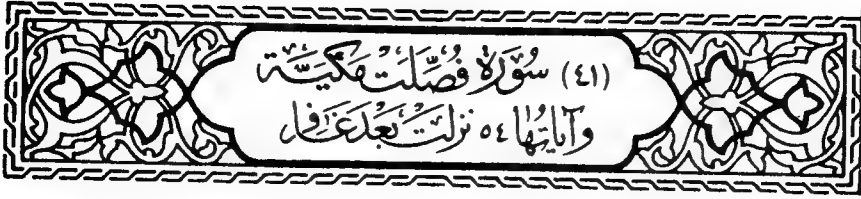 (٤١) سُوَرةُ فُصِّلَتْ مَكيَّة
وآيَاتُهَا ٥٤ نَزلَتْ بَعْد غَافِر